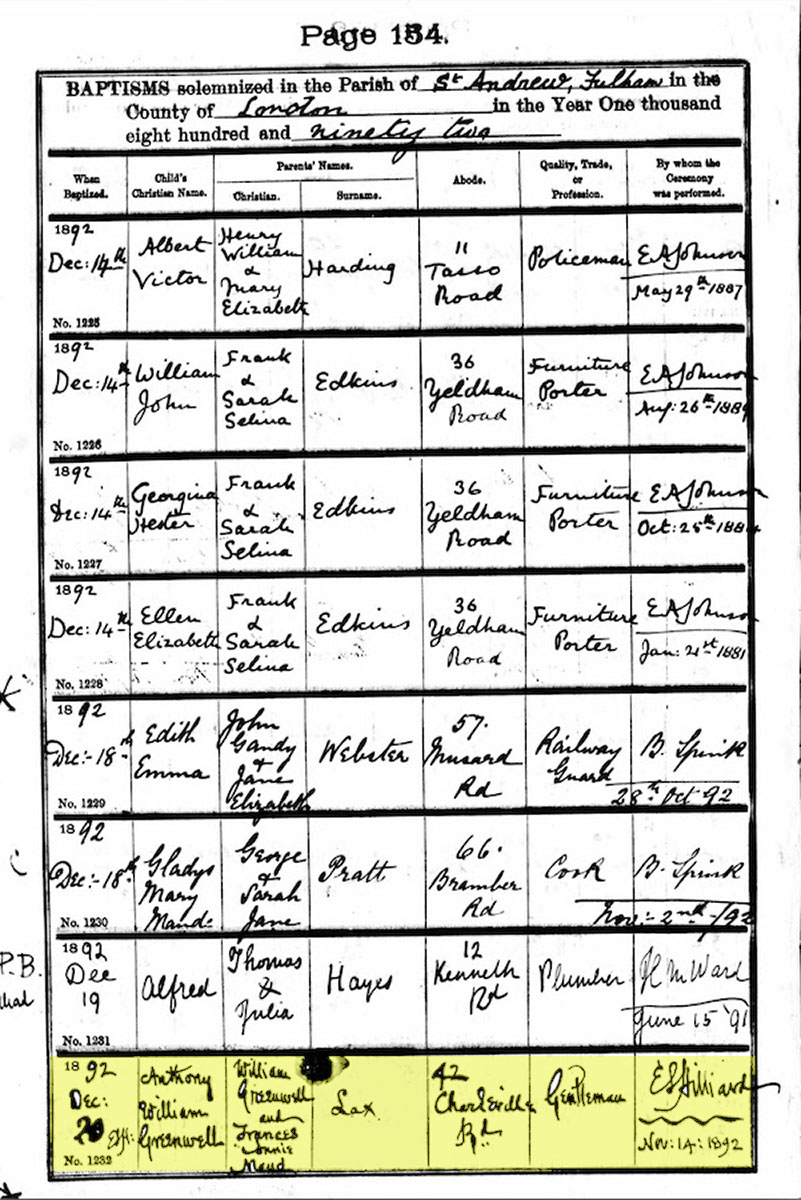 Page 134.
BAPTISMS solemnized in the Parish of St Andrew, Fulham in the
County of London in the Year One thousand
eight hundred and ninety two
When Baptized.
Child's Christian Name.
Parents' Names.
Christian.
Surname.
Abode.
Quality, Trade, or Profession.
By whom the Ceremony was performed.
1892
Dec: 14th
No. 1225
Albert
Victor
Henry
William
&
Mary
Elizabeth
Harding
11
Tasso
Road
Policeman
E A Johnson
May 29th 1887
1892
Dec: 14th
No. 1226
William
John
Frank
&
Sarah
Selina
Edkins
36
Yeldham
Road
Furniture
Porter
E A Johnson
Aug: 26th 1889
1892
Dec: 14th
No. 1227
Georgina
Hester
Frank
&
Sarah
Selina
Edkins
36
Yeldham
Road
Furniture
Porter
E A Johnson
Oct: 25th
1892
Dec: 14th
No. 1228
Ellen
Elizabeth
Frank
&
Sarah
Selina
Edkins
36
Yeldham
Road
Furniture
Porter
E A Johnson
Jan: 21st 1881
1892
Dec:- 18th
No. 1229
Edith
Emma
John
Gandy
+
Jane
Elizabeth
Webster
57.
Musard
Rd
Railway
Guard
B. Spink
28th Oct 92
1892
Dec:- 18th
No. 1230
Gladys
Mary
Maud
George
+
Sarah
Jane
Pratt
66.
Bramber
Rd
Cook
B. Spink
Nov:- 2nd /92
P.B.
1892
Dec
19
No. 1231
Alfred
Thomas
&
Julia
Hayes
12
Kenneth
Rd
Plumber
H M Ward
June 15 '91
1892
Dec:
20
No. 1232
Anthony
William
Greenwell
William
Greenwell
and
Frances
Annie
Maud
Lax
42
Charleville
Rd
Gentleman
Hilliard
Nov: 14: 1892